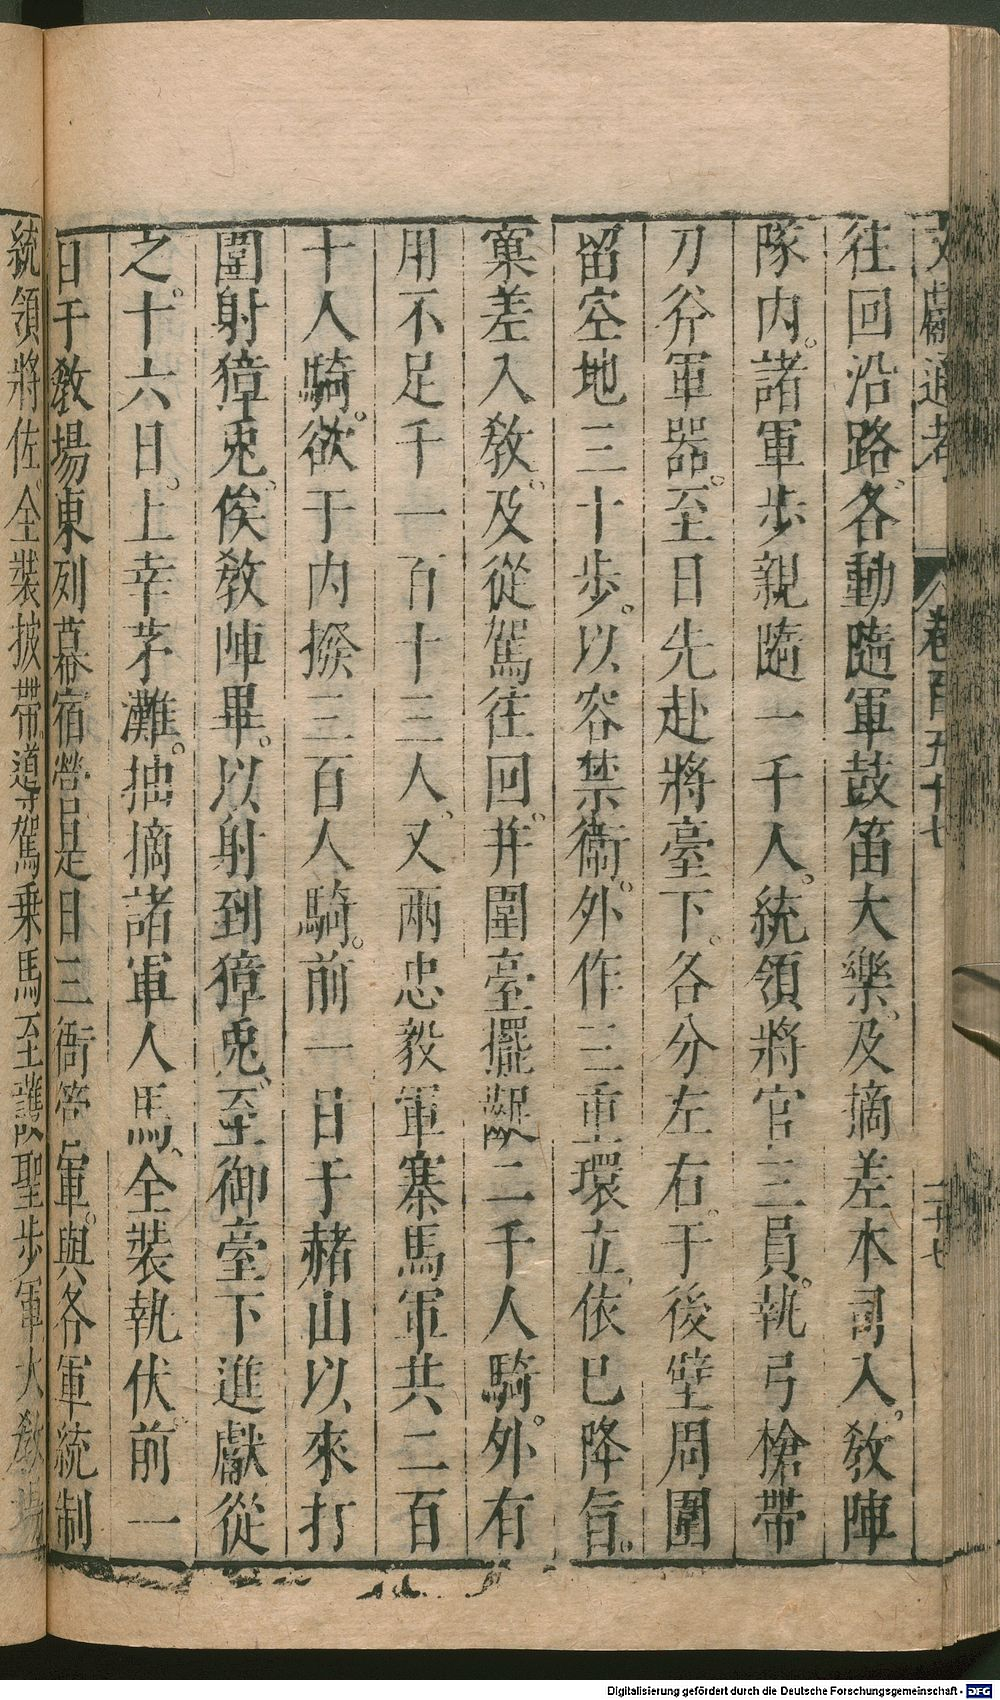 文獻通考 卷百五十七 二十七
往回沿路各動隨軍鼓笛大樂及摘差本司入敎陣
隊内諸軍步親隨一千人。統領將官三員執弓槍帶
刀斧軍器。至日先赴將臺下。各分左右。于後壁周圍
留空地三十步。以容禁衛。外作三重環立依已降旨。
窠差入敎及從駕往回。并圍臺擺齪二千人騎。外有
用不足千一百十三人。又兩忠毅軍寨馬軍共二百
十人騎。欲于内撥三百人騎。前一日于赭山以來打
圍射獐兎。俟敎陣畢。以射到獐兎。至御臺下進獻從
之。十六日。上幸茅灘。抽摘諸軍人馬。全裝執伏。前一
日于敎場東列幕宿營。是日三衙管軍。與各軍統制
統領將佐。全裝披帶。導駕乗馬至護聖步軍大敎場
Digitalisierung gefördert durch die Deutsche Forschungsgemeinschaft - DFG